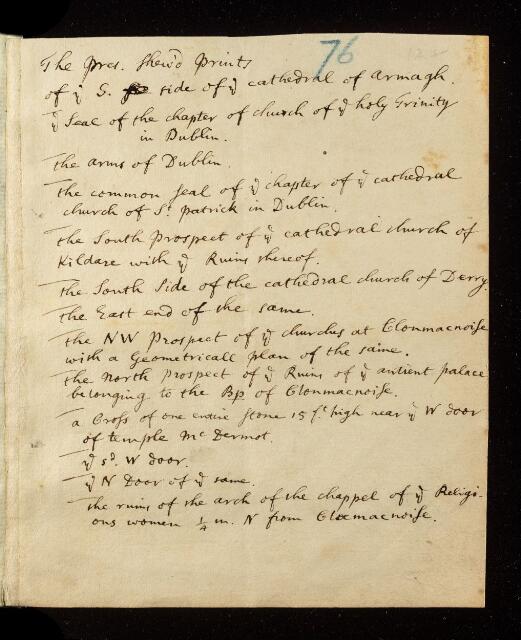 76
The Pres. shew'd Prints
of ẙ S. side of ẙ cathedral of Armagh.
ẙ Seal of the chapter of church of ẙ holy Trinity
in Dublin.
The arms of Dublin.
the common seal of ẙ chapter of ẙ cathedral
church of St Patrick in Dublin.
the South Prospect of ẙ cathedral church of
Kildare with ẙ Ruins thereof.
the South Side of the cathedral church of Derry.
the East end of the same.
the NW Prospect of ẙ churches at Clonmacnoise
with a Geometricall plan of the same.
the North Prospect of ẙ Ruins of ẙ antient palace
belonging to the Bp of Clonmacnoise.
a Cross of one entire stone 15 f. high near ẙ W door
of temple Mc Dermot.
ẙ sd. W door.
ẙ N Door of ẙ same.
the ruins of the arch of the chappel of ẙ Religi-
ous women ¼ m. N from Clocmacnoise.